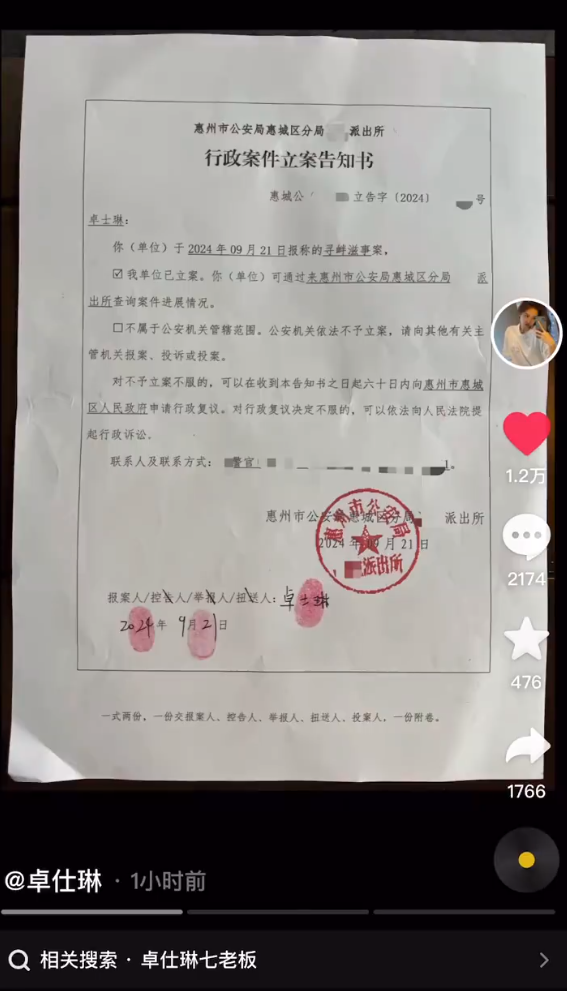 惠州市公安局惠城区分局 派出所
行政案件立案告知书
惠城公 立告字〔2024〕 号
卓士琳:
你(单位)于2024年09月21日报称的寻衅滋事案,
☑我单位已立案。你(单位)可通过来惠州市公安局惠城区分局 派
出所查询案件进展情况。
☐不属于公安机关管辖范围。公安机关依法不予立案,请向其他有关主
管机关报案、投诉或投案。
对不予立案不服的,可以在收到本告知书之日起六十日内向惠州市惠城
区人民政府申请行政复议。对行政复议决定不服的,可以依法向人民法院提
起行政诉讼。
联系人及联系方式: 警官
惠州市公安局惠城区分局 派出所
2024年09月21日
惠州市公安局
派出所
报案人/控告人/举报人/扭送人:卓士琳
2024年9月21日
一式两份,一份交报案人、控告人、举报人、扭送人、投案人,一份附卷。
1.2万
2174
476
1766
@卓仕琳 · 1小时前
相关搜索 · 卓仕琳七老板